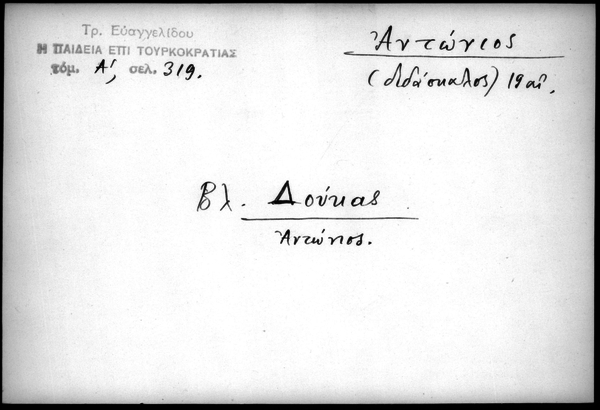 Τρ. Εὐαγγελίδου
Η ΠΑΙΔΕΙΑ ΕΠΙ ΤΟΥΡΚΟΚΡΑΤΙΑΣ
τόμ. Α', σελ. 319.
Ἀντώνιος
(διδάσκαλος) 19 αἰ.
Βλ. Δούκας
Ἀντώνιος.